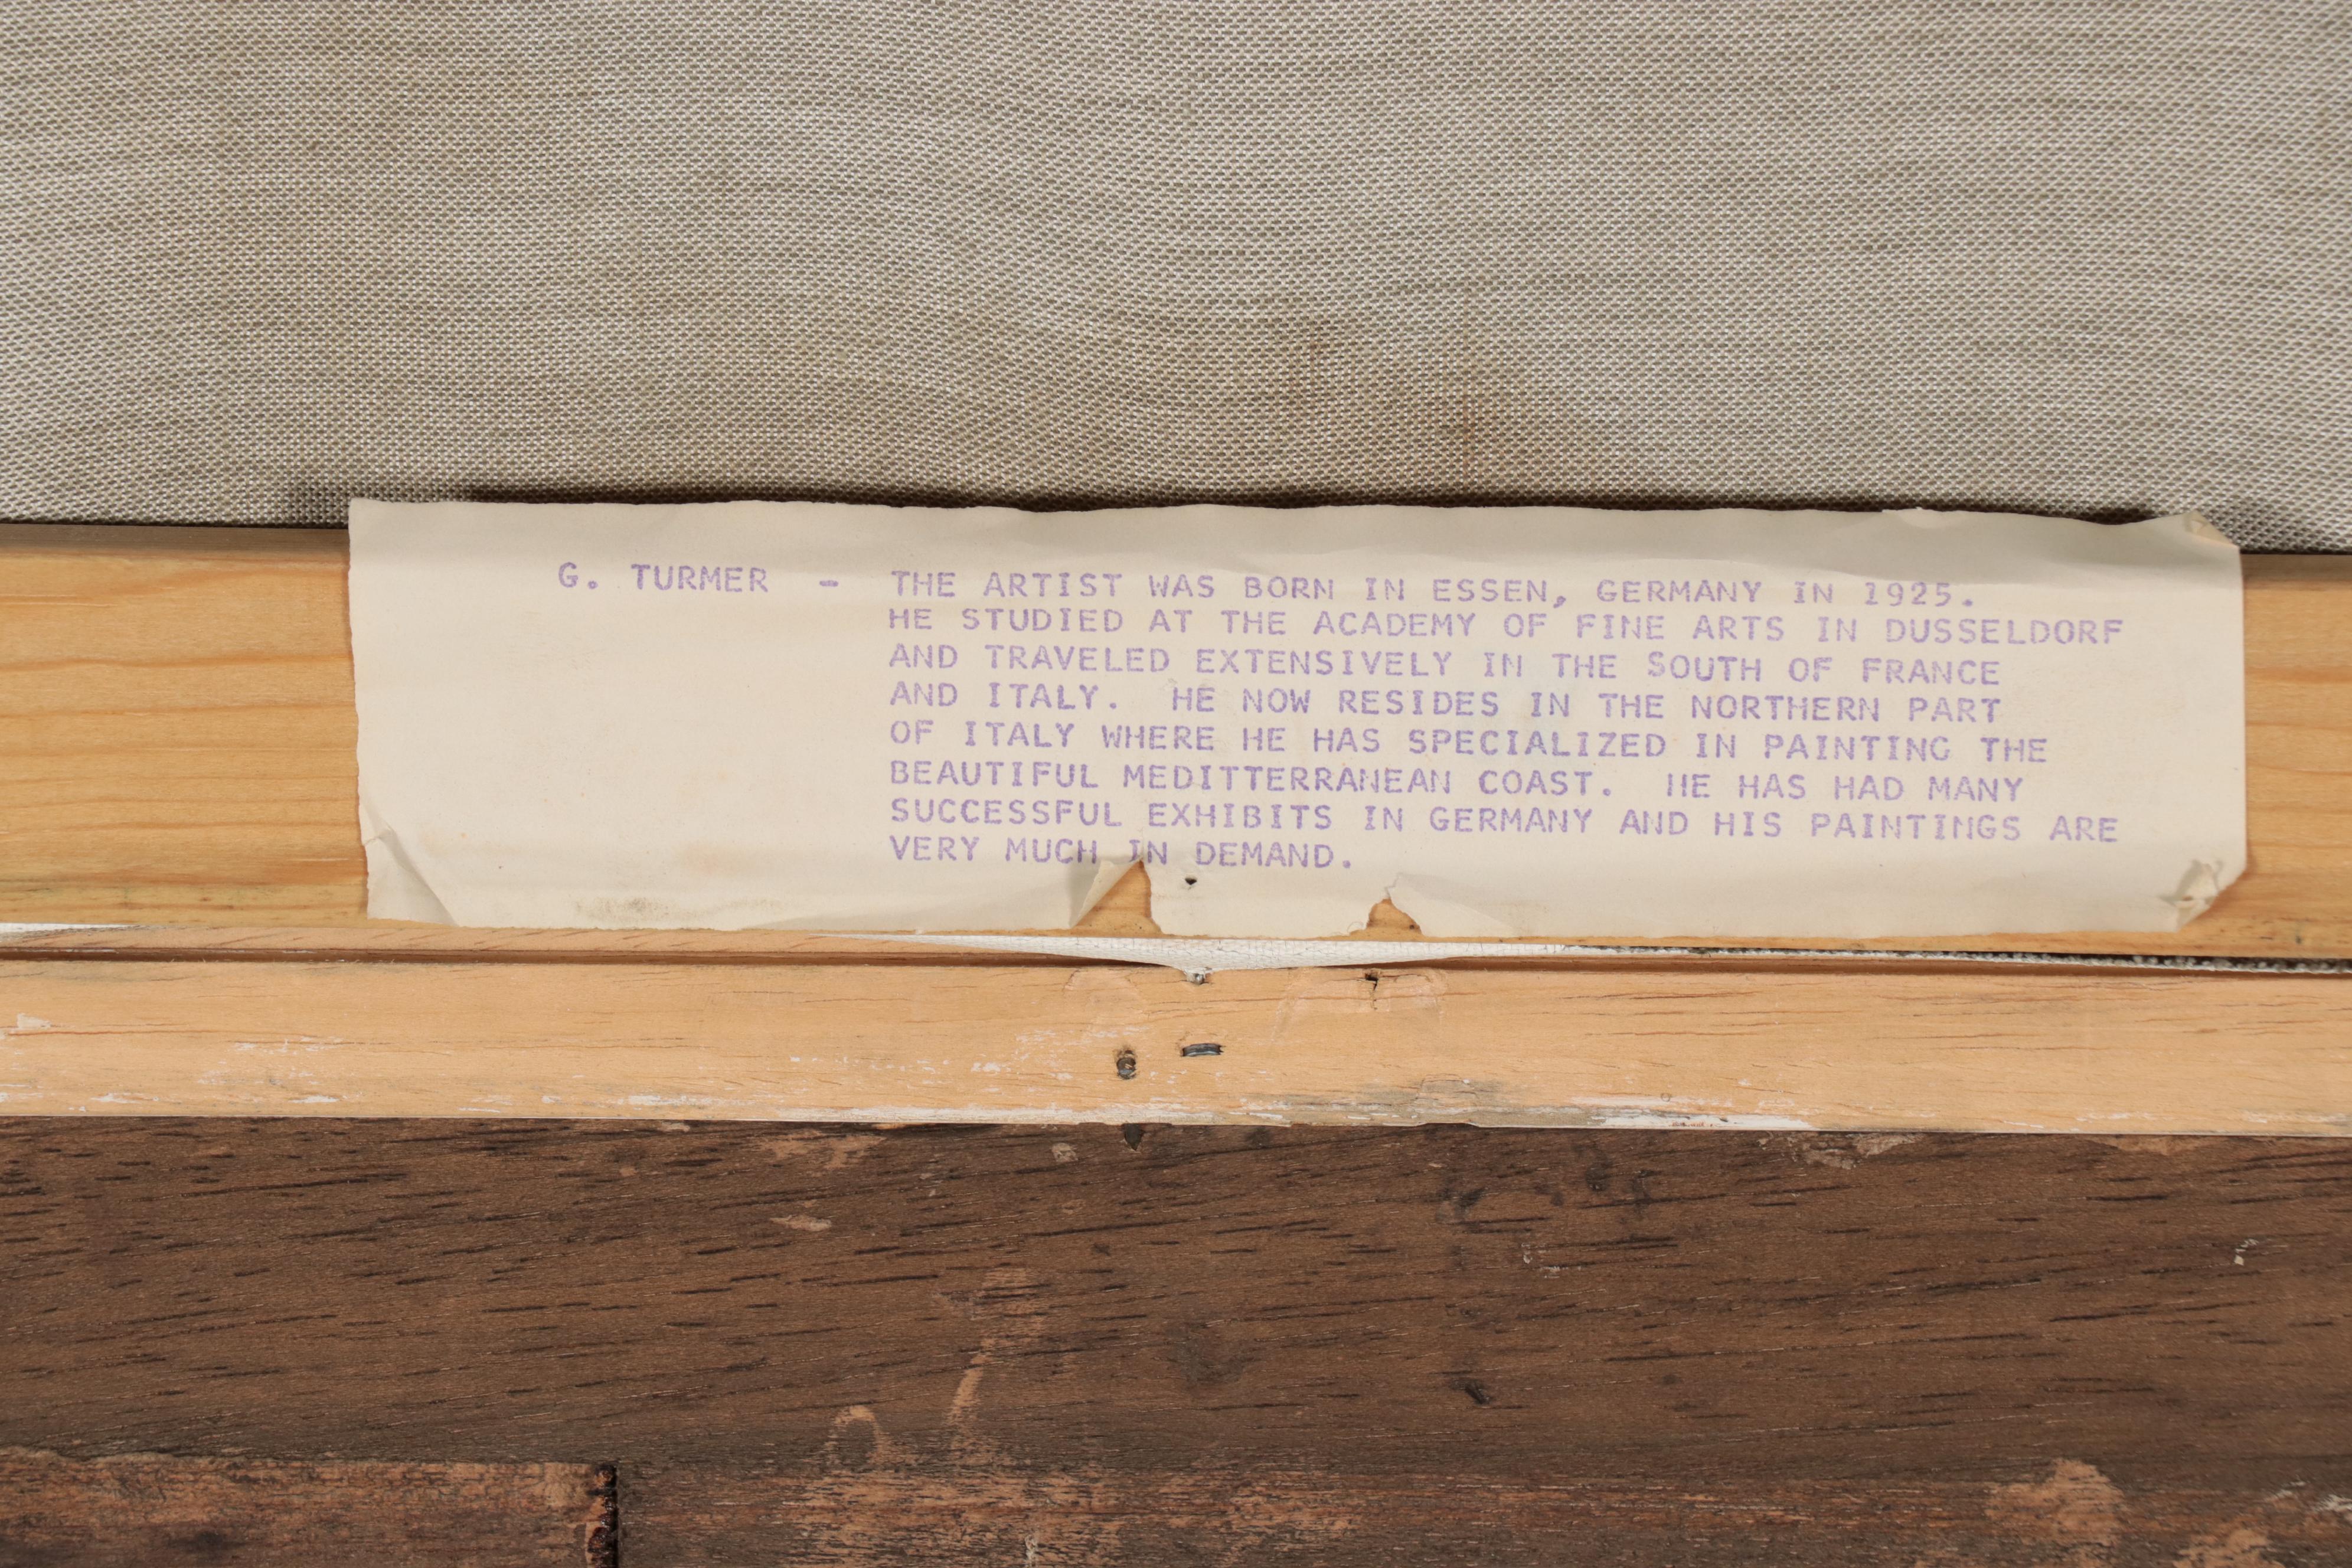 G. TURMER - THE ARTIST WAS BORN IN ESSEN, GERMANY IN 1925.
HE STUDIED AT THE ACADEMY OF FINE ARTS IN DUSSELDORF
AND TRAVELED EXTENSIVELY IN THE SOUTH OF FRANCE
AND ITALY. HE NOW RESIDES IN THE NORTHERN PART
OF ITALY WHERE HE HAS SPECIALIZED IN PAINTING THE
BEAUTIFUL MEDITTERRANEAN COAST. HE HAS HAD MANY
SUCCESSFUL EXHIBITS IN GERMANY AND HIS PAINTINGS ARE
VERY MUCH IN DEMAND.